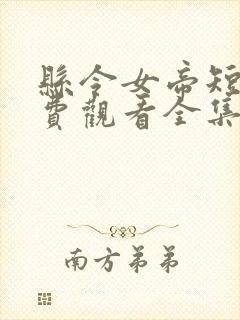 縣令女帝短
費觀看全集
南方弟弟